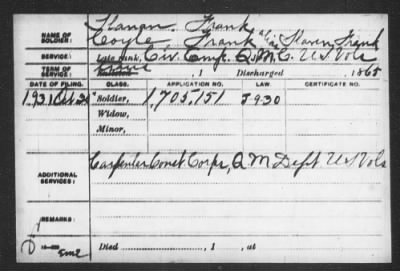 Flanan, Frank
NAME OF SOLDIER: Coyle Frank alias Slaven, Frank
SERVICE: Late rank, Civ. Emp. Q.M.C. U.S. Vols
TERM OF SERVICE: Enlisted , 1 Discharged , 1865
DATE OF FILING. CLASS. APPLICATION NO. LAW. CERTIFICATE NO.
1931 Oct 24 Soldier, 1,705,151 5-9-30
Widow,
Minor,
ADDITIONAL SERVICES: Carpenter Const. Corps, Q M Dept U S Vols
REMARKS:
Died , 1 , at